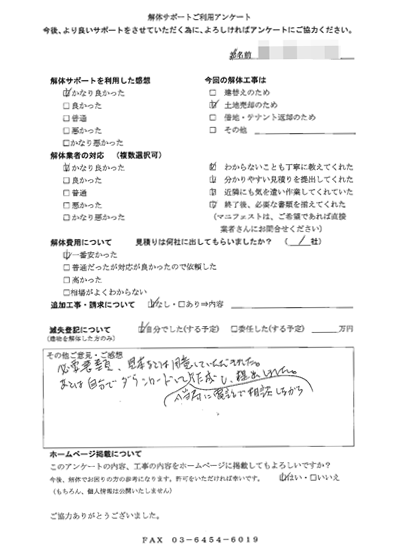 解体サポートご利用アンケート
今後、より良いサポートをさせていただく為に、よろしければアンケートにご協力ください。
お名前
解体サポートを利用した感想
☑かなり良かった
□良かった
□普通
□悪かった
□かなり悪かった
今回の解体工事は
□ 建替えのため
☑ 土地売却のため
□ 借地・テナント返却のため
□ その他
解体業者の対応 (複数選択可)
☑かなり良かった
□良かった
□普通
□悪かった
□かなり悪かった
☑ わからないことも丁寧に教えてくれた
☑ 分かりやすい見積りを提出してくれた
☑ 近隣にも気を遣い作業してくれていた
☑ 終了後、必要な書類を揃えてくれた
(マニフェストは、ご希望であれば直接
業者さんにお問合せください)
解体費用について 見積りは何社に出してもらいましたか? ( 1 社)
☑一番安かった
□普通だったが対応が良かったので依頼した
□高かった
□相場がよくわからない
追加工事・請求について ☑なし・□あり⇒内容
滅失登記について ☑自分でした(する予定) □委任した(する予定) 万円
(建物を解体した方のみ)
その他ご意見・ご感想
必要書類、見本などは用意していただきました。
あとは自分でダウンロードして作成し、提出しました。
に電話で相談しながら
ホームページ掲載について
このアンケートの内容、工事の内容をホームページに掲載してもよろしいですか?
今後、解体でお困りの方の参考になります。許可をいただければ幸いです。 ☑はい・□いいえ
(もちろん、個人情報は公開いたしません)
ご協力ありがとうございました。
FAX 03-6454-6019